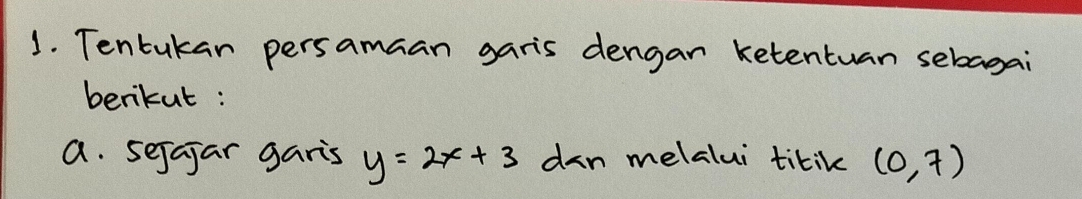 1. Tentukan persamaan garis dengan ketentuan sebagai
berikut :
a. sejajar garis y = 2x + 3 dan melalui titik (0,7)